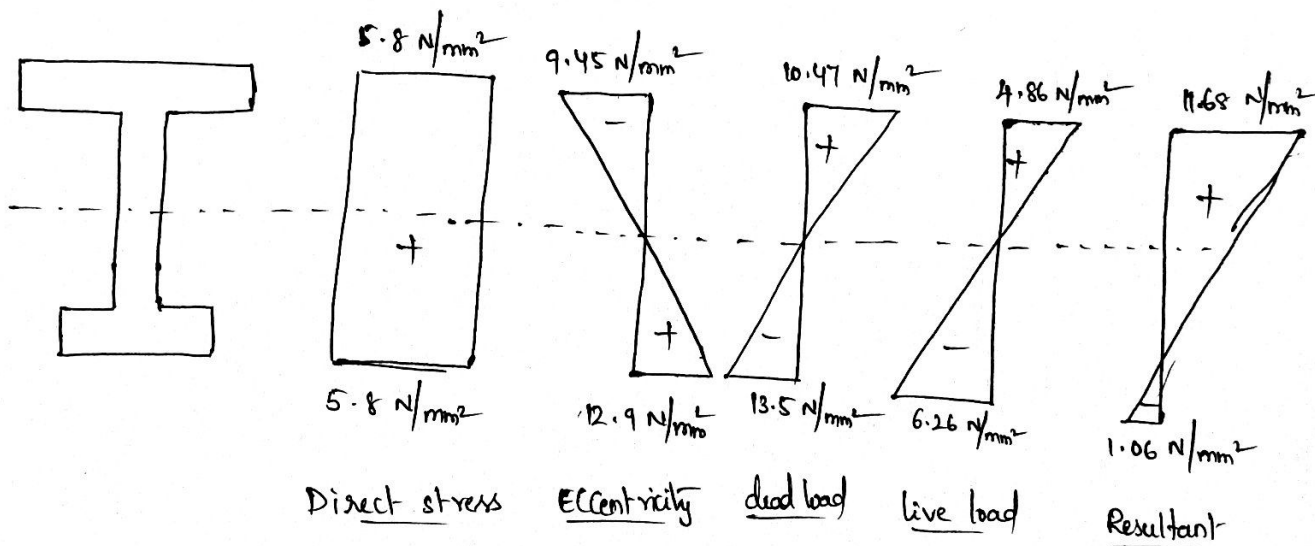 5.8 N/mm²
9.45 N/mm²
10.47 N/mm²
4.86 N/mm²
11.68 N/mm²
-
+
+
+
+
+
-
-
-
5.8 N/mm²
12.9 N/mm²
13.5 N/mm²
6.26 N/mm²
1.06 N/mm²
Direct stress
Eccentricity
dead load
live load
Resultant